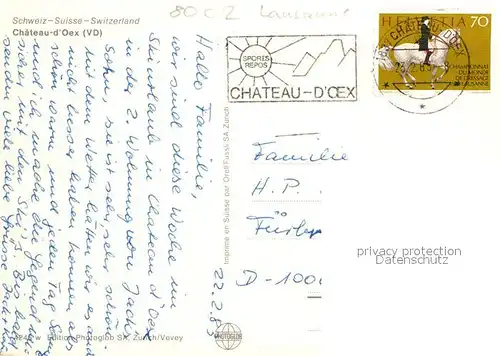 8002 Lausanne
Schweiz - Suisse - Switzerland
Château-d'Oex (VD)
Hallo Familie,
wir sind diese Woche im
Skiurlaub in Chateau d'Oex
in der 2. Wohnung von Jack's
Sohn, sie ist sehr, sehr schön.
mit dem Wetter hätten wir es auch
nicht besser haben können, es
schön warm und jeden Tag So
und ich mache die Gegend
mit den Ski's. Bis bald
senden viele liebe Grüsse Jack +
22.2.85
Imprimé en Suisse par Orell Füssli SA, Zurich
Edition Photoglob SA, Zürich/Vevey
PHOTOGLOB
SPORTS
REPOS
CHATEAU-D'ŒX
CHATEAU-D'OEX
HELVETIA 70
CHAMPIONNAT
DU MONDE
DE DRESSAGE
LAUSANNE
Familie
H. P.
D-1000
privacy protection
Datenschutz